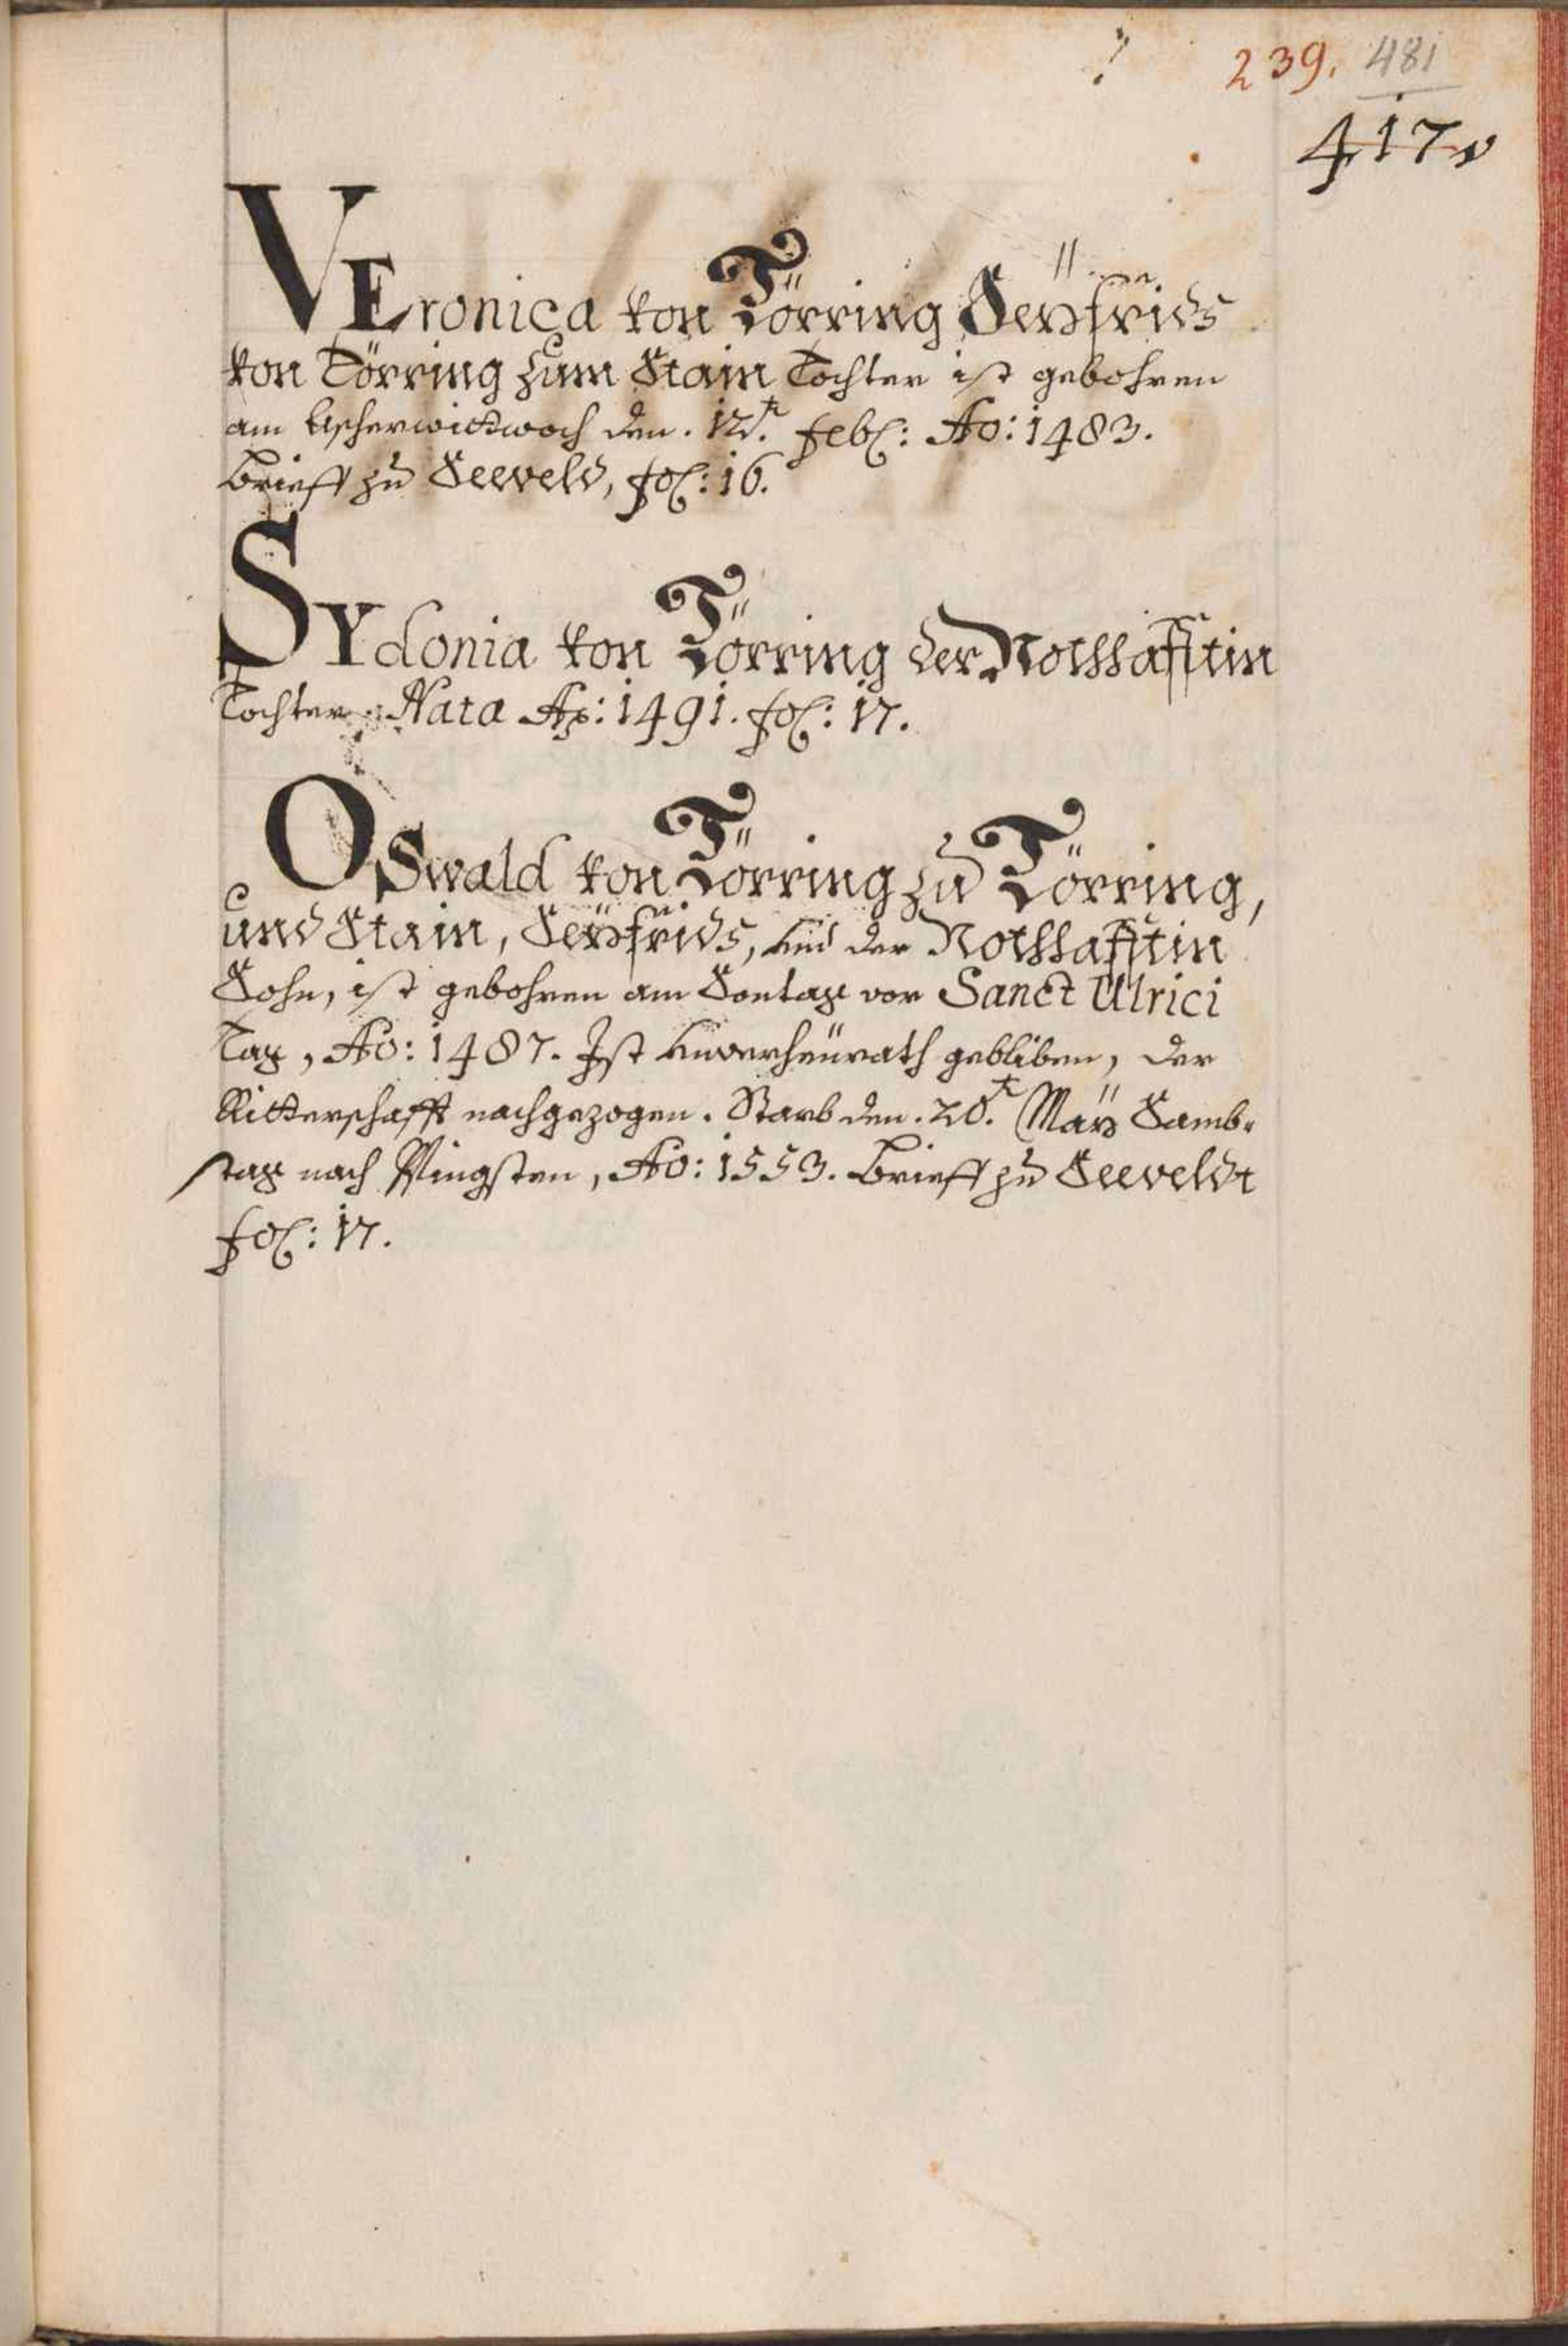 239. 481
417
VEronica von Törring Seÿfrids
von Törring zum Stain Tochter ist gebohren
am Aschermittwoch den. 12.t Feb: Ao: 1483.
Brieff zu Seeveld, fol: 16.
SYdonia von Törring der Nothhafftin
Tochter. Nata Ao: 1491. fol: 17.
OSwald von Törring zu Törring,
und Stain, Seÿfrids, und der Nothhafftin
Sohn, ist gebohren am Sontag vor Sanct Ulrici
Tag, Ao: 1487. Ist unverheürath gebliben, der
Ritterschafft nachgezogen. Starb den. 20.t März Samb-
stag nach Pfingsten, Ao: 1553. Brieff zu Seeveldt
fol: 17.